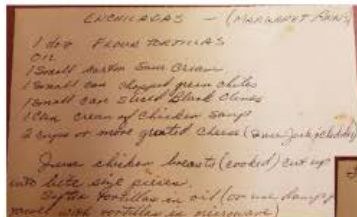 ENCHILADAS - (MARGARET ANN'S)
1 doz FLOUR TORTILLAS
OIL
1 Small carton Sour Cream
1 Small can chopped green chiles
1 Small can Sliced Black Olives
1 Can Cream of Chicken Soup
2 cups or more grated cheese (
chicken breasts (cooked) cut up
into bite size pieces.
Soften tortillas in oil (or use damp
towel with tortillas in microwave)